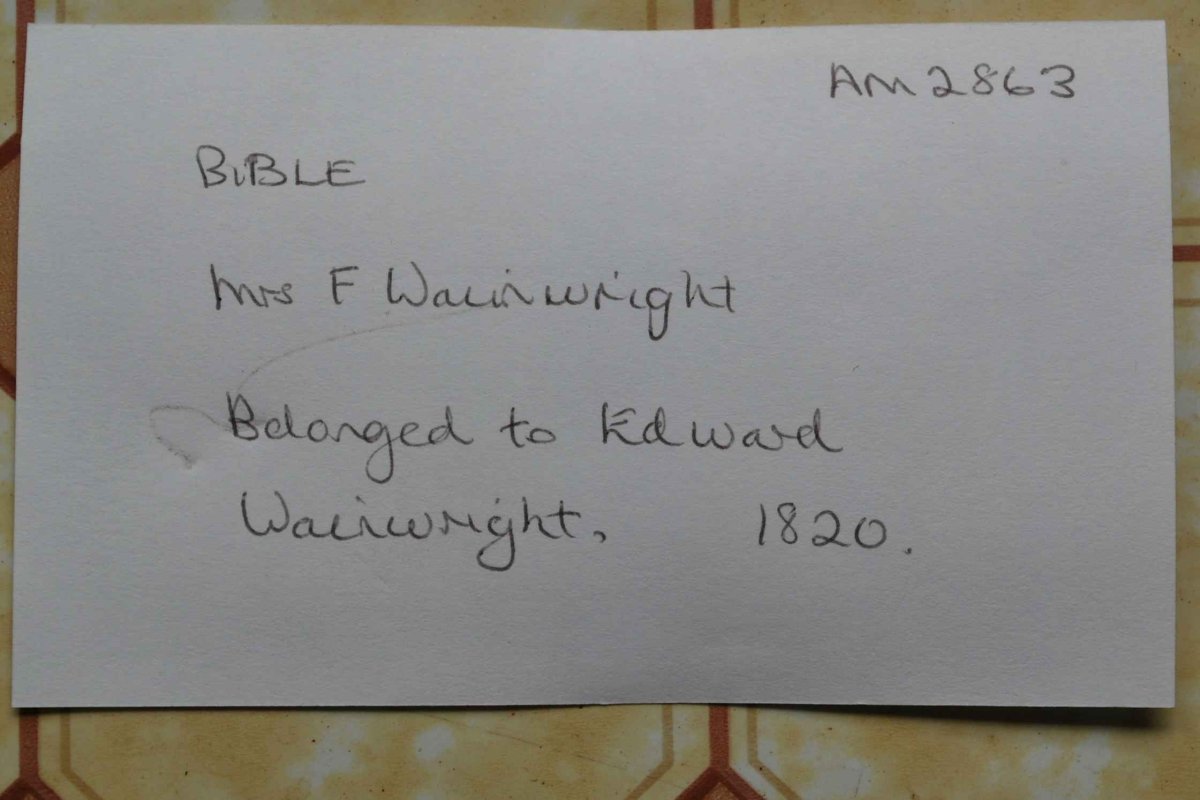 AM2863
BIBLE
Mrs F Wainwright
Belonged to Edward
Wainwright. 1820.